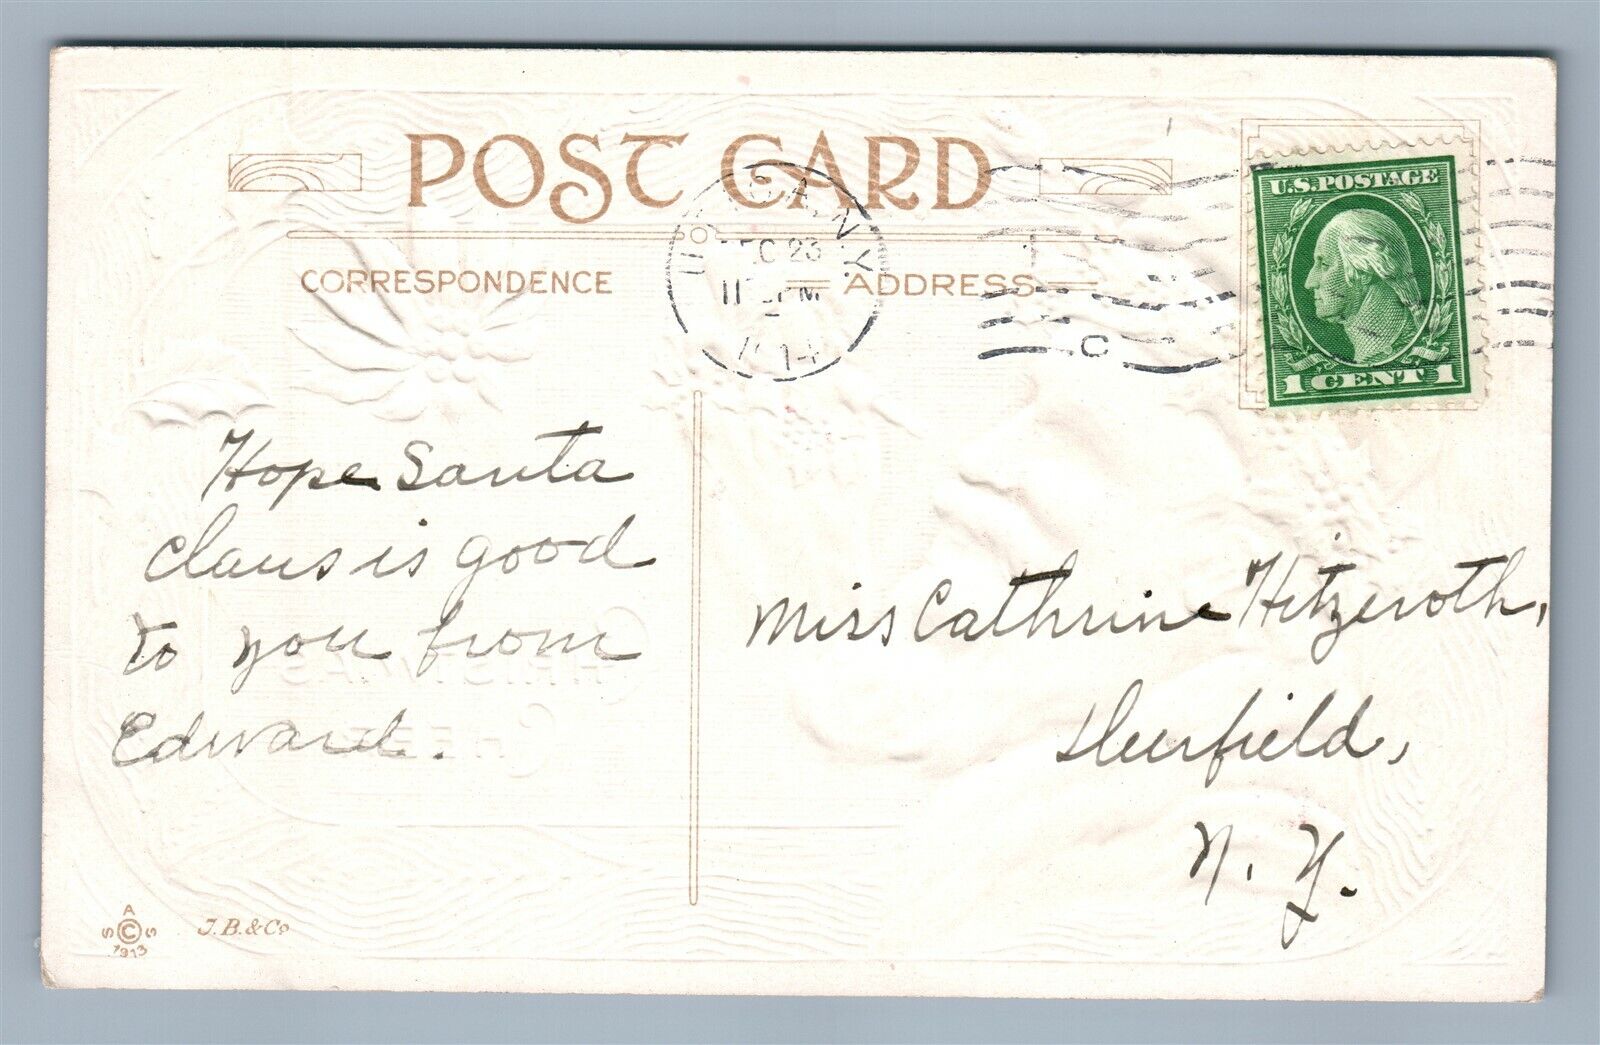 POST CARD
CORRESPONDENCE
ADDRESS
UTICA, N.Y.
DEC 23
PM
1914
U.S. POSTAGE
1 CENT 1
C
Hope Santa
Claus is good
to you from
Edward.
Miss Cathrine Hitzeroth,
Deerfield,
N. Y.
CHRISTMAS
GREETING
A
S © S
1913
J. B. & Co